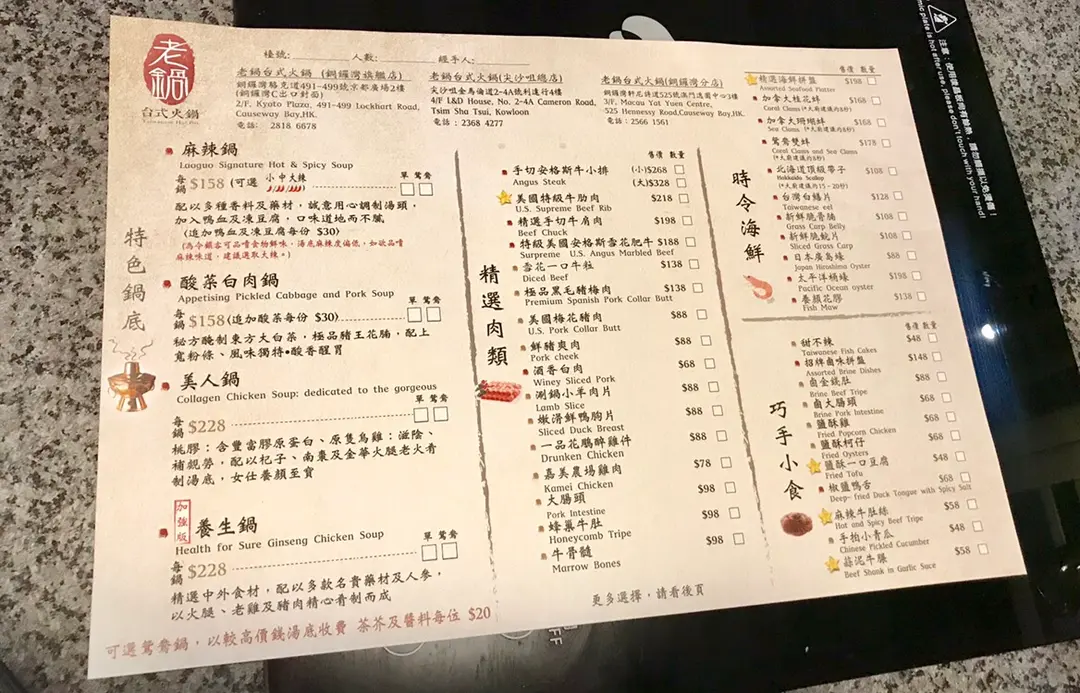 老鍋
台式火鍋
Taiwanese Hot Pot
檯號:
人數:
經手人:
老鍋台式火鍋 (銅鑼灣旗艦店)
銅鑼灣駱克道491-499號京都廣場2樓
(銅鑼灣C出口對面)
2/F, Kyoto Plaza, 491-499 Lockhart Road,
Causeway Bay,HK.
電話: 2818 6678
老鍋台式火鍋(尖沙咀總店)
尖沙咀金馬倫道2-4A號利達行4樓
4/F L&D House, No. 2-4A Cameron Road,
Tsim Sha Tsui, Kowloon
電話：2368 4277
老鍋台式火鍋(銅鑼灣分店)
銅鑼灣軒尼詩道525號澳門逸園中心3樓
3/F, Macau Yat Yuen Centre,
525 Hennessy Road,Causeway Bay,HK.
電話：2566 1561
特色鍋底
麻辣鍋
Laoguo Signature Hot & Spicy Soup
單 鴛鴦
每鍋 $158 (可選 小 中 大辣
配以多種香料及藥材，誠意用心調制湯頭，
加入鴨血及凍豆腐，口味道地而不膩
(追加鴨血及凍豆腐每份 $30)
(為令顧客可品嚐食物鮮味，湯底麻辣度偏低，如欲品嚐
麻辣味道，建議選取大辣。)
酸菜白肉鍋
Appetising Pickled Cabbage and Pork Soup
單 鴛鴦
每鍋 $158(追加酸菜每份 $30)
秘方醃制東方大白菜，極品豬王花腩，配上
寬粉條、風味獨特•酸香醒胃
美人鍋
Collagen Chicken Soup: dedicated to the gorgeous
單 鴛鴦
每鍋 $228
桃膠：含豐富膠原蛋白、原隻烏雞：滋陰、
補親勞，配以杞子、南棗及金華火腿老火肴
制湯底，女仕養顏至寶
加強版
養生鍋
Health for Sure Ginseng Chicken Soup
單 鴛鴦
每鍋 $228
精選中外食材，配以多款名貴藥材及人參，
以火腿、老雞及豬肉精心肴制而成
可選鴛鴦鍋，以較高價錢湯底收費 茶芥及醬料每位 $20
精選肉類
售價 數量
手切安格斯牛小排 (小)$268
Angus Steak (大)$328
美國特級牛肋肉 $218
U.S. Supreme Beef Rib
精選手切牛肩肉 $198
Beef Chuck
特級美國安格斯雪花肥牛 $188
Surpreme U.S. Angus Marbled Beef
雪花一口牛粒 $138
Diced Beef
極品黑毛豬梅肉 $138
Premium Spanish Pork Collar Butt
美國梅花豬肉 $88
U.S. Pork Collar Butt
鮮豬爽肉 $88
Pork cheek
酒香白肉 $68
Winey Sliced Pork
涮鍋小羊肉片 $88
Lamb Slice
嫩滑鮮鴨胸片 $88
Sliced Duck Breast
一品花鵰醉雞件 $88
Drunken Chicken
嘉美農場雞肉 $78
Kamei Chicken
大腸頭 $98
Pork Intestine
蜂巢牛肚 $98
Honeycomb Tripe
牛骨髓 $98
Marrow Bones
更多選擇，請看後頁
時令海鮮
售價 數量
精選海鮮拼盤 $198
Assorted Seafood Platter
加拿大桂花蚌 $168
Coral Clams (*大廚建議灼8秒)
加拿大珊瑚蚌 $168
Sea Clams (*大廚建議灼8秒)
鴛鴦雙蚌 $178
Coral Clams and Sea Clams
(*大廚建議灼8秒)
北海道頂級帶子 $108
Hokkaido Scallop
(*大廚建議灼15-20秒)
台灣白鱔片 $128
Taiwanese eel
新鮮脆骨腩 $108
Grass Carp Belly
新鮮鯇片 $108
Sliced Grass Carp
日本廣島蠔 $88
Japan Hiroshima Oyster
太平洋桶蠔 $198
Pacific Oceanic oyster
養顏花膠 $138
Fish Maw
巧手小食
售價 數量
甜不辣 $48
Taiwanese Fish Cakes
招牌鹵味拼盤 $148
Assorted Brine Dishes
鹵金錢肚 $88
Brine Beef Tripe
鹵大腸頭 $68
Brine Pork Intestine
鹽酥雞 $68
Fried Popcorn Chicken
鹽酥柯仔 $68
Fried Oysters
鹽酥一口豆腐 $48
Fried Tofu
椒鹽鴨舌 $68
Deep- fried Duck Tongue with Spicy Salt
麻辣牛肚絲 $58
Hot and Spicy Beef Tripe
手拍小青瓜 $48
Chinese Pickled Cucumber
蒜泥牛𦟌 $58
Beef Shank in Garlic Suce
注意：使用後晶板尚有餘熱，請勿觸摸以免燙傷！
mic plate is hot after use, please don't touch with your hand!
OFF